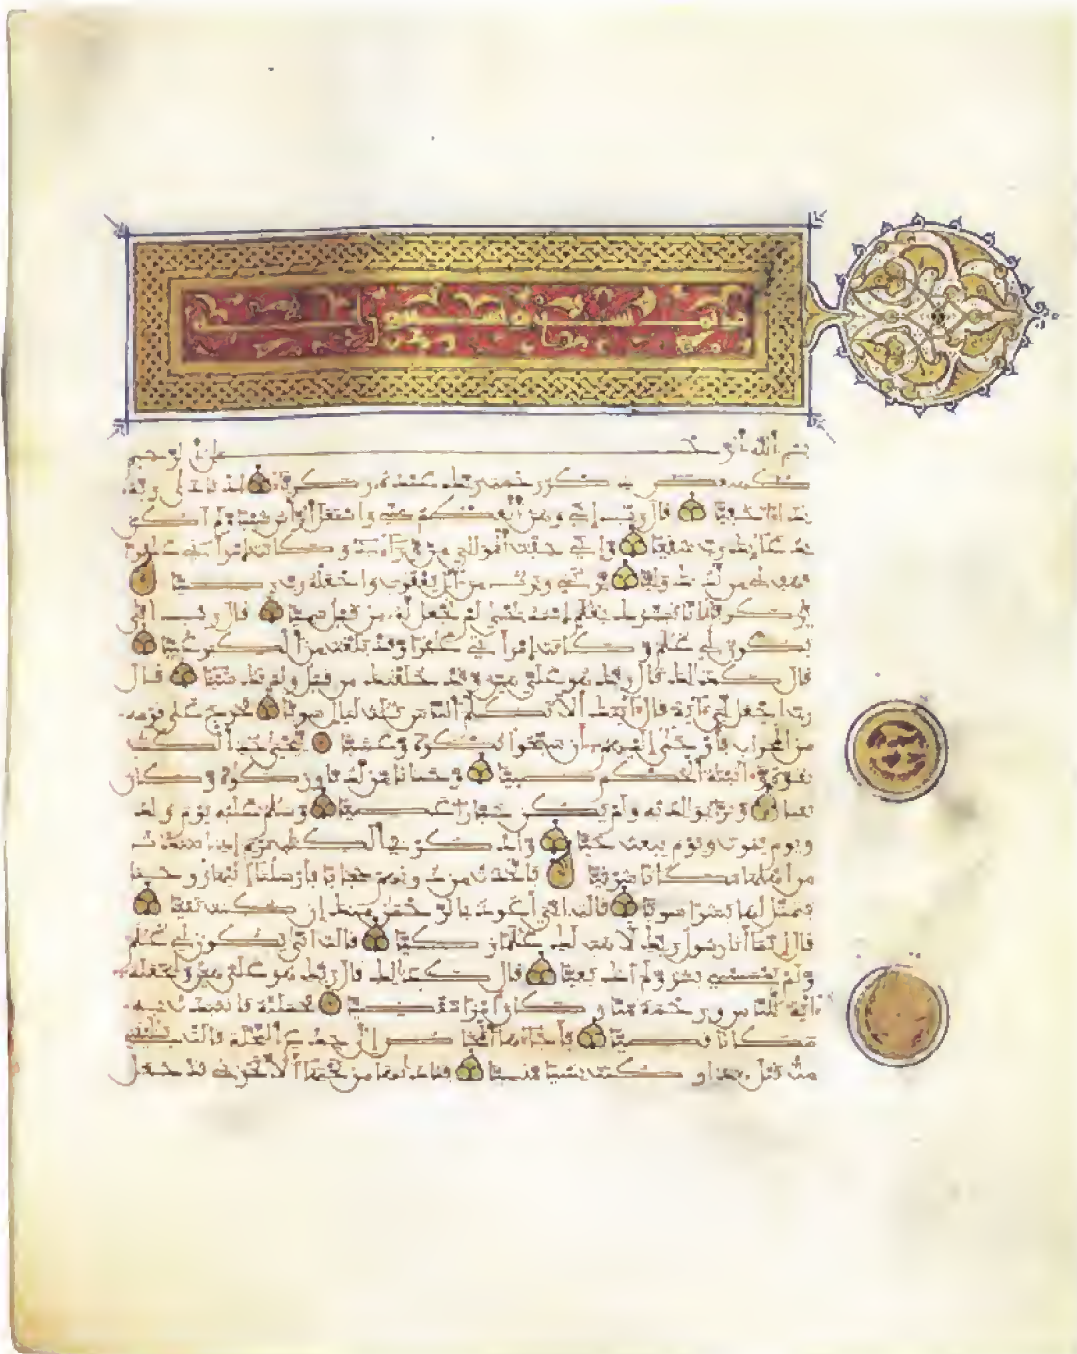 بسم الله الرحمن الرحيم
كهيعص ذكر رحمت ربك عبده زكرياء اذ نادى ربه
نداء خفيا قال رب إني وهن العظم مني واشتعل الرأس شيبا ولم أكن
بدعائك رب شقيا وإني خفت الموالي من وراءي وكانت امرأتي عاقرا
فهب لي من لدنك وليا يرثني ويرث من آل يعقوب واجعله رب رضيا
يزكرياء إنا نبشرك بغلم اسمه يحيى لم نجعل له من قبل سميا قال رب أنى
يكون لي غلم وكانت امرأتي عاقرا وقد بلغت من الكبر عتيا
قال كذلك قال ربك هو علي هين وقد خلقتك من قبل ولم تك شيئا قال
رب اجعل لي ءاية قال ءايتك ألا تكلم الناس ثلث ليال سويا فخرج على قومه
من المحراب فأوحى إليهم أن سبحوا بكرة وعشيا ييحيى خذ الكتب
بقوة وءاتينه الحكم صبيا وحنانا من لدنا وزكوة وكان
تقيا وبرا بولديه ولم يكن جبارا عصيا وسلم عليه يوم ولد
ويوم يموت ويوم يبعث حيا واذكر في الكتب مريم إذ انتبذت
من أهلها مكانا شرقيا فاتخذت من دونهم حجابا فأرسلنا إليها روحنا
فتمثل لها بشرا سويا قالت إني أعوذ بالرحمن منك إن كنت تقيا
قال إنما أنا رسول ربك لأهب لك غلما زكيا قالت أنى يكون لي غلم
ولم يمسسني بشر ولم أك بغيا قال كذلك قال ربك هو علي هين ولنجعله
ءاية للناس ورحمة منا وكان أمرا مقضيا فحملته فانتبذت به
مكانا قصيا فأجاءها المخاض إلى جذع النخلة قالت يليتني
مت قبل هذا وكنت نسيا منسيا فناديها من تحتها ألا تحزني قد جعل